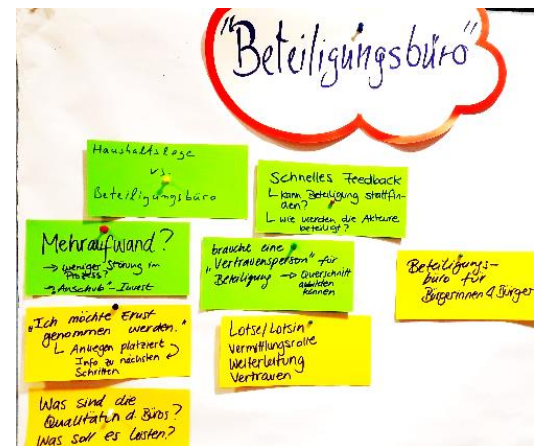 "Beteiligungsbüro"
Haushaltslage
vs.
Beteiligungsbüro
Schnelles Feedback
kann Beteiligung stattfin-
den?
wie werden die Akteure
beteiligt?
Mehraufwand?
→ weniger Störung im
Prozess?
→ "Anschub"-Invest
brauche eine
"Vertrauensperson" für
Beteiligung → Querschnitt
abbilden
können
Beteiligungs-
büro für
Bürgerinnen & Bürger
"Ich möchte Ernst
genommen werden."
Anliegen platziert
Info zu nächsten
Schritten
Lotse/Lotsin
Vermittlungsrolle
Weiterleitung
Vertrauen
Was sind die
Qualitäten d. Büros?
Was soll es leisten?